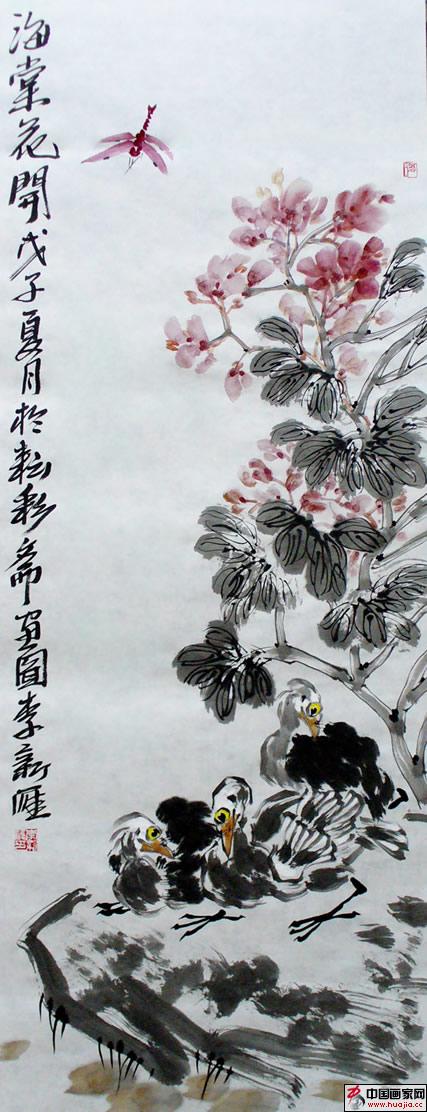 海棠花開戊子夏月於耘彩斋画圖李新
中国画家网
www.huajia.cc